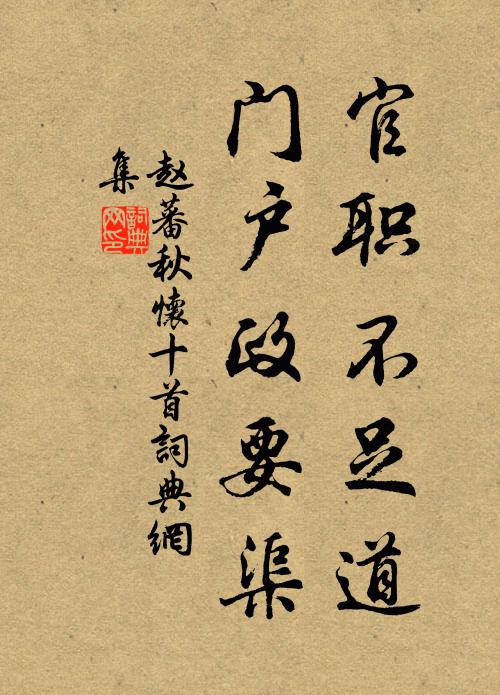 官职不足道
门户政要渠
赵蕃秋懷十首詞典網
集
詞典网印